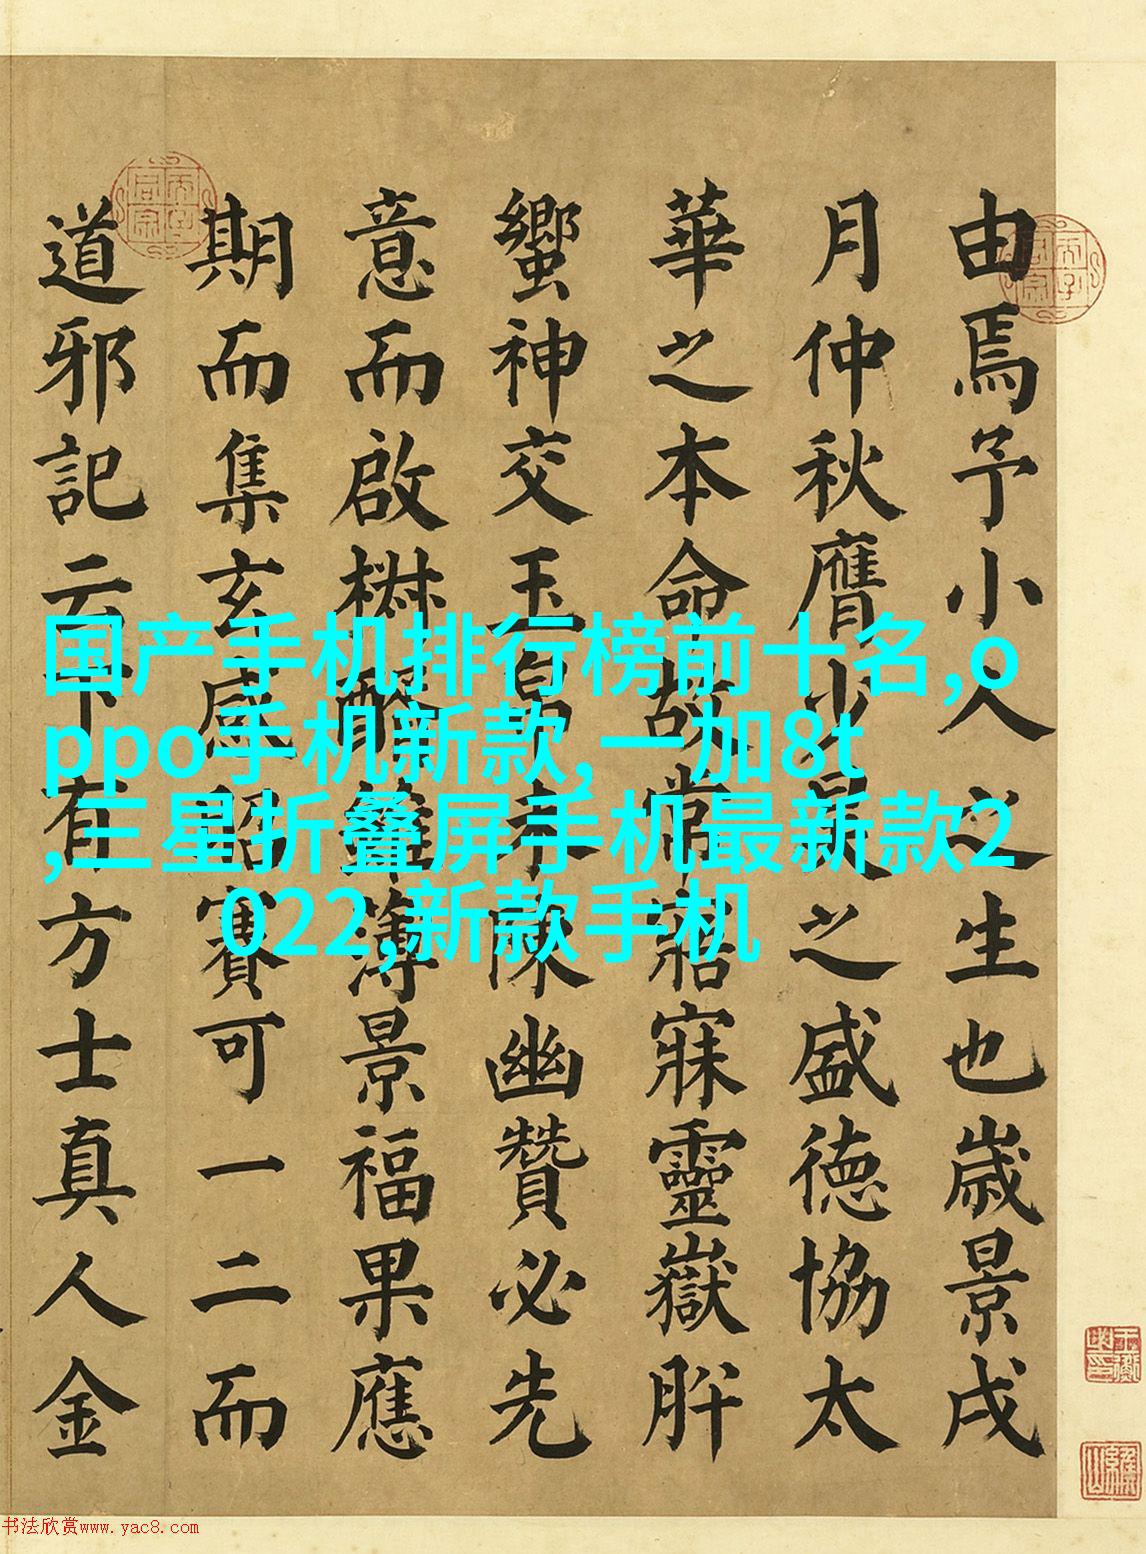 由焉予小人之生也歲景戌
月仲秋膺少昊之盛德協太
華之本命故常寤寐靈嶽肸
蠁神交玉帛未陳幽贊必先
意而啟雖薄景福果應
期而集玄感昭賽可一二而
道邪記云下有方士真人金
国产手机排行榜前十名,o
ppo手机新款,一加8t
,三星折叠屏手机最新款2
022,新款手机
书法欣赏www.yac8.com